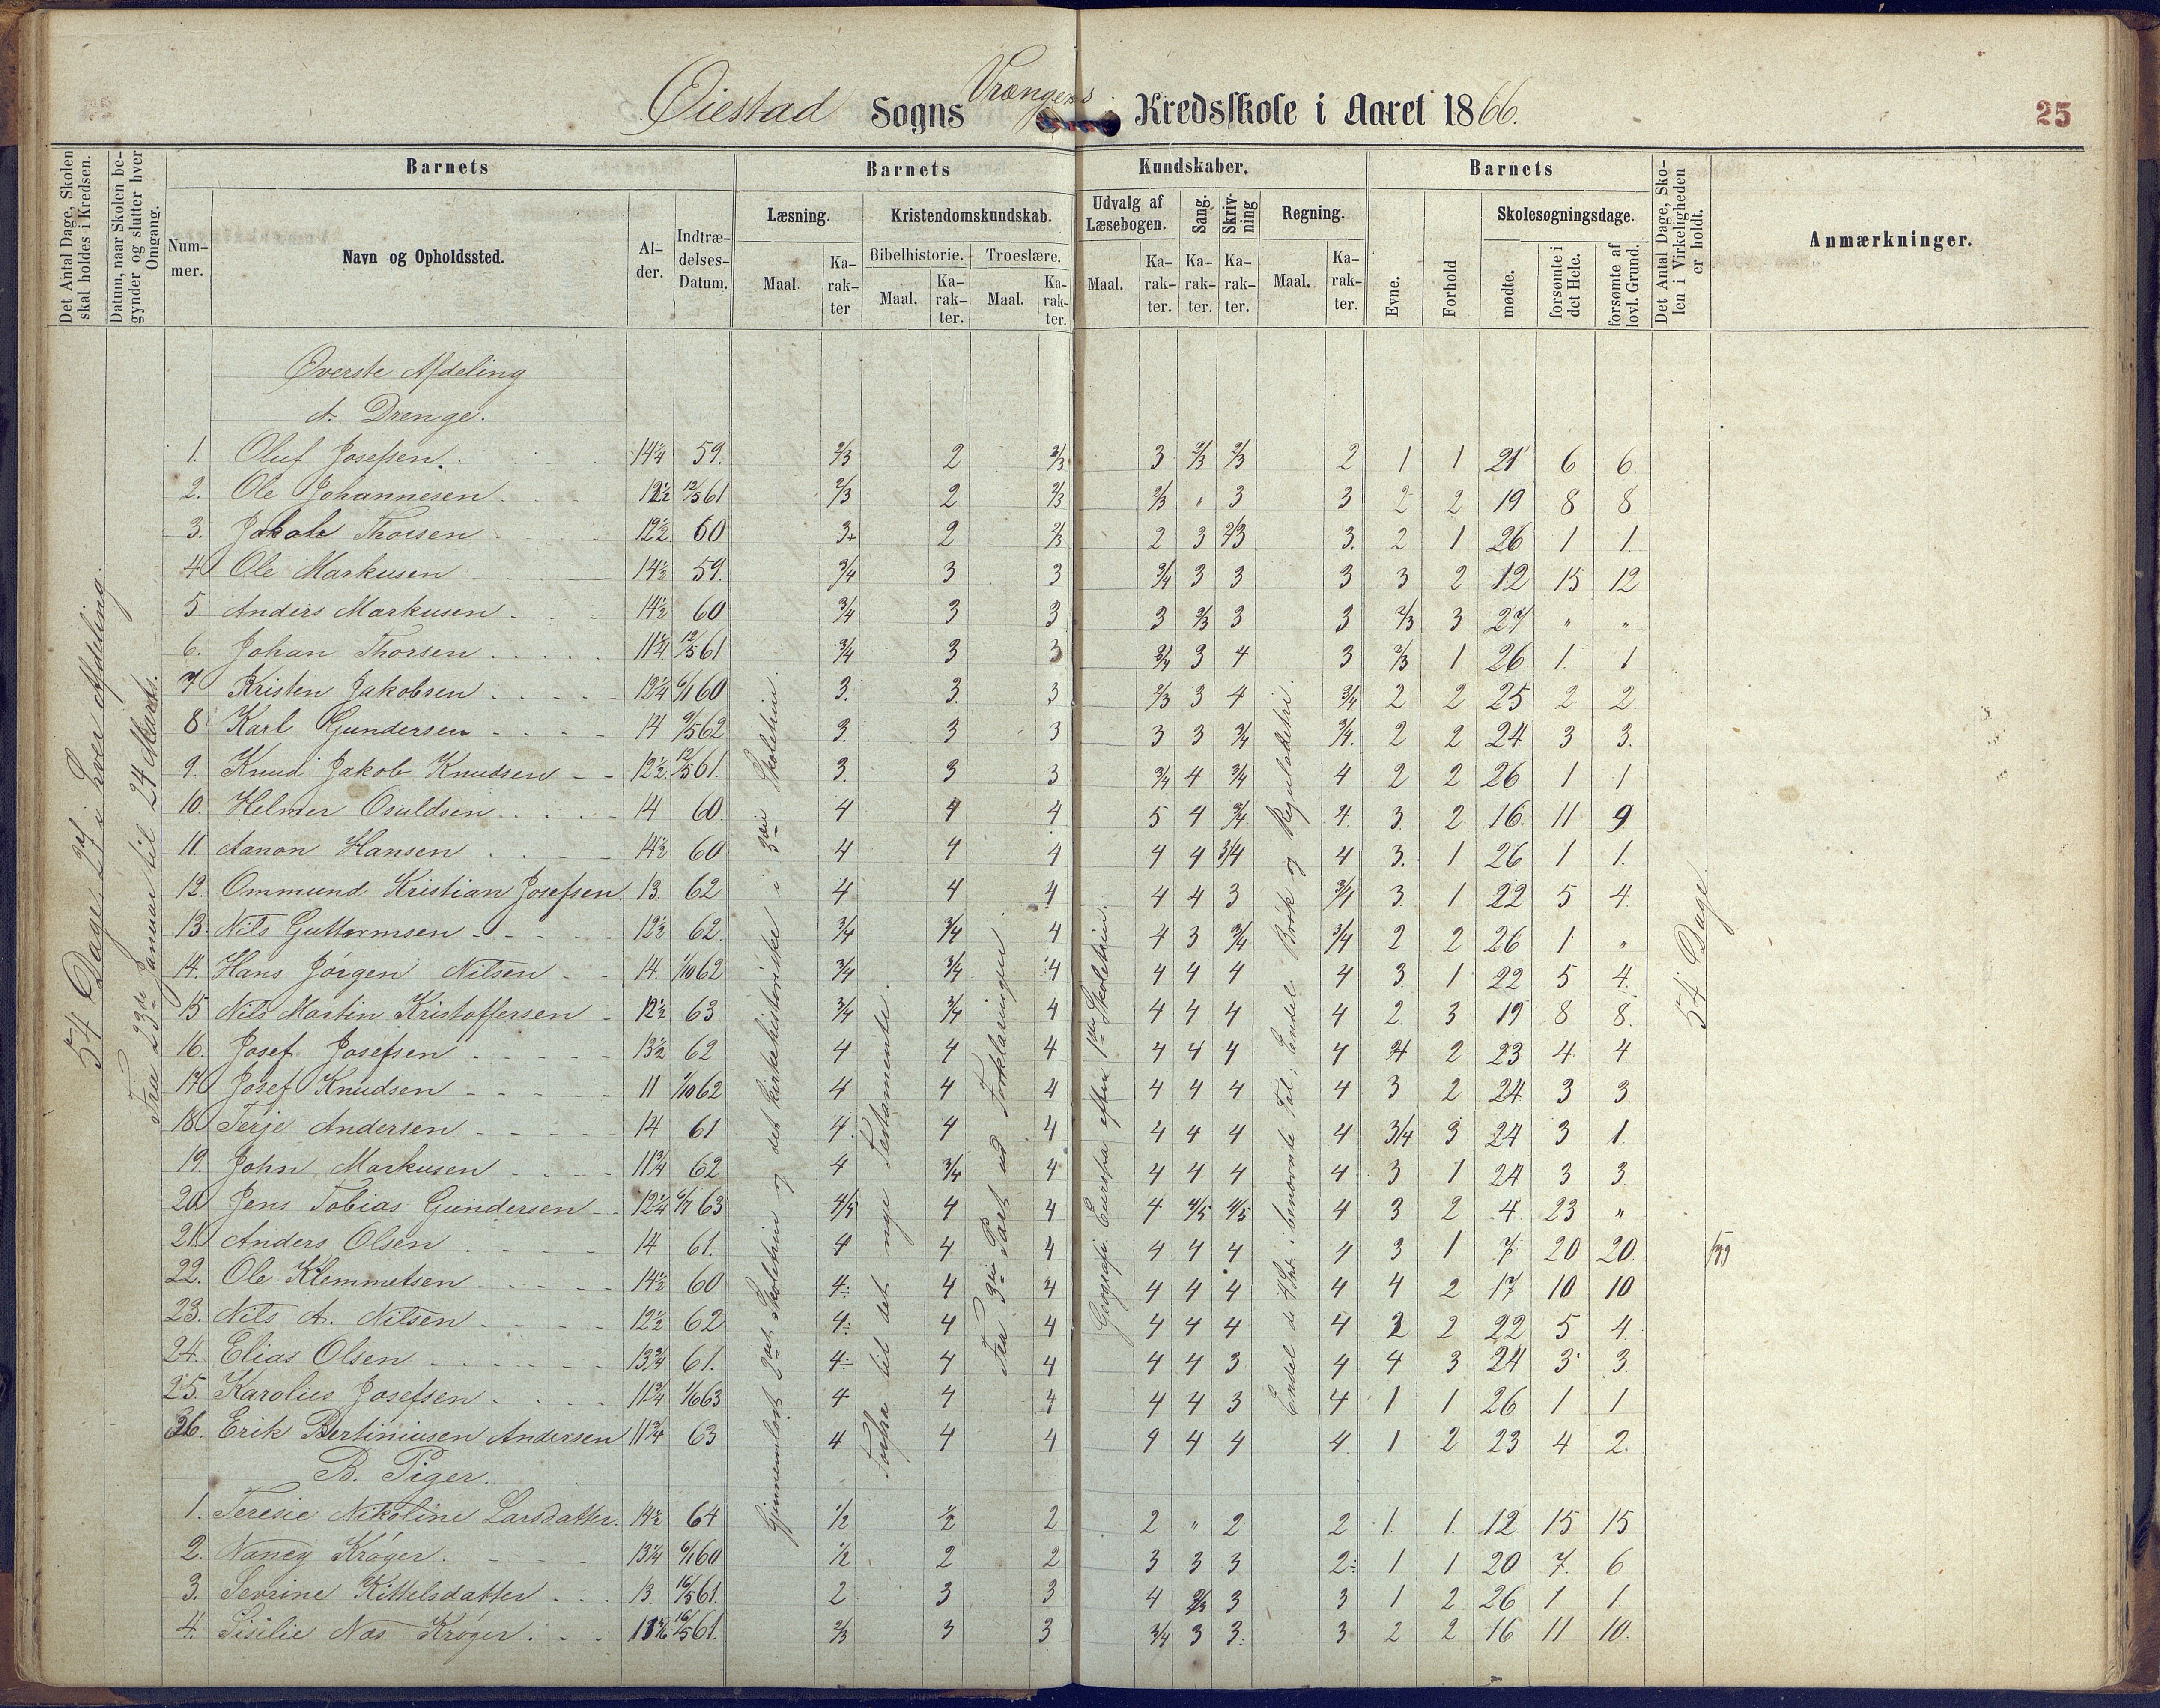 Øiestad Sogns Vrængens Kredsskole i Aaret 1866.
25
Det Antal Dage, Skolen skal holdes i Kredsen.
Datum, naar Skolen begynder og slutter hver Omgang.
Barnets
Nummer.
Navn og Opholdssted.
Alder.
Indtrædelses-Datum.
Barnets Kundskaber.
Læsning.
Maal.
Karakter
Kristendomskundskab.
Bibelhistorie.
Maal.
Karakter.
Troeslære.
Maal.
Karakter.
Udvalg af Læsebogen.
Maal.
Karakter.
Sang.
Karakter.
Skrivning
Karakter.
Regning.
Maal.
Karakter.
Barnets
Evne.
Forhold
Skolesøgningsdage.
mødte.
forsømte i det Hele.
forsømte af lovl. Grund.
Det Antal Dage, Skolen i Virkeligheden er holdt.
Anmærkninger.
54 Dage, 27 i hver Afdeling.
Fra 23de Januar til 24 Marts.
Gjennemløst 2det Skoletrin og det kirkehistoriske i 3die Skoletrin.
Forfra til det nye Testamente.
Fra 3die Part ud Forklaringen
Geografi. Europa efter 1ste Skoletrin.
Endel de 4 Sp. i benævnte Tal; Endel Brøk og Reguladetri.
54 Dage
Øverste Afdeling
A. Drenge.
1. Oluf Josefsen. 14¼ 59. 2/3 2 2/3 3 2/3 2/3 2 1 1 21 6 6.
2. Ole Johannesen 12½ 12/5 61 2/3 2 2/3 2/3 " 3 3 2 2 19 8 8
3. Jakob Thorsen 12½ 60 3+ 2 2/3 2 3 2/3 3. 2 1 26 1 1
4 Ole Markusen 14½ 59. 3/4 3 3 3/4 3 3 3 3 2 12 15 12
5. Anders Markusen 14½ 60 3/4 3 3 3 2/3 3 3 2/3 3 27 " "
6. Johan Thorsen 11¼ 12/5 61 3/4 3 3 3/4 3 4 3 2/3 1 26 1. 1
7 Kristen Jakobsen 12¼ 6/1 60 3. 3. 3 2/3 3 4 3/4 2 2 25 2 2
8 Karl Gundersen 14 9/5 62 3. 3 3 3 3 3/4 3/4. 2 2 24 3 3.
9. Knud Jakob Knudsen 12½ 12/5 61. 3. 3 3 3/4 4 3/4 4 2 2 26 1 1
10. Helmer Osuldsen 14 60. 4 4 4 5 4 3/4 4. 3. 2 16. 11 9
11. Aanon Hansen 14½ 60 4 4 4 4 4 3/4 4 3. 1 26 1 1.
12. Ommund Kristian Josefsen. 13. 62 4 4 4 4 4 3 3/4 3. 1 22 5 4.
13. Nils Guttormsen 12½ 62. 3/4 3/4 4 4 3 3/4 3/4 2 2 26 1 "
14. Hans Jørgen Nilsen 14. 1/10 62 3/4 3/4 4 4 4 4 4 3. 1 22 5 4.
15 Nils Martin Kristoffersen 12½ 63 3/4 3/4 4 4 4 4 4 2. 3 19 8 8.
16. Josef Josefsen 13½ 62 4 4 4 4 4 4 4 2 23 4 4
17 Josef Knudsen 11 1/10 62 4 4 4 4 4 4 4 3 2 24 3 3
18 Terje Andersen 14 61 4. 4 4 4 4 4 4 3/4 3 24 3 1
19. John Markusen 11¾ 62 4 3/4 4 4 4 4 4 3 1 24 3 3.
20 Jens Tobias Gundersen 12¼ 6/7 63 4/5 4 4 4 4/5 4/5 4 3 2 4 23 "
21. Anders Olsen 14 61. 4 4 4 4 4 4 4 3 1 7 20 20.
22. Ole Klemmetsen 14½ 60 4÷ 4 4 4 4 4 4 4 2 17 10 10
23. Nils A. Nilsen 12½ 62 4÷ 4 4 4 4 4 4 2 22 5 4.
24. Elias Olsen 13¾ 61. 4÷ 4 4 4 4 3 4 4 3 24 3 3
25. Karolius Josefsen 11¾ 1/6 63 4 4 4 4 4 3 4 1 1 26 1 1
26. Erik Bertiniusen Andersen 11¾ 63 4 4 4 4 4 4 4. 1 2 23 4 2.
B. Piger.
1. Teresie Nikoline Larsdatter. 14½ 64 1/2 1/2 2 2 " 2 2 1. 1. 12 15 15
2. Nancy Krøger. 13¼ 6/1 60 1/2 2 2 3 3 3 2÷ 1 1 20 7. 6
3. Sevrine Kittelsdatter 13 16/5 61. 2 3 3 4 2/3 3 3 1 2 26 1 1.
4. Sisilie Næs Krøger. 16/5 61. 2/3 3 3 3/4 3 3: 3 2 2 16 11 10.